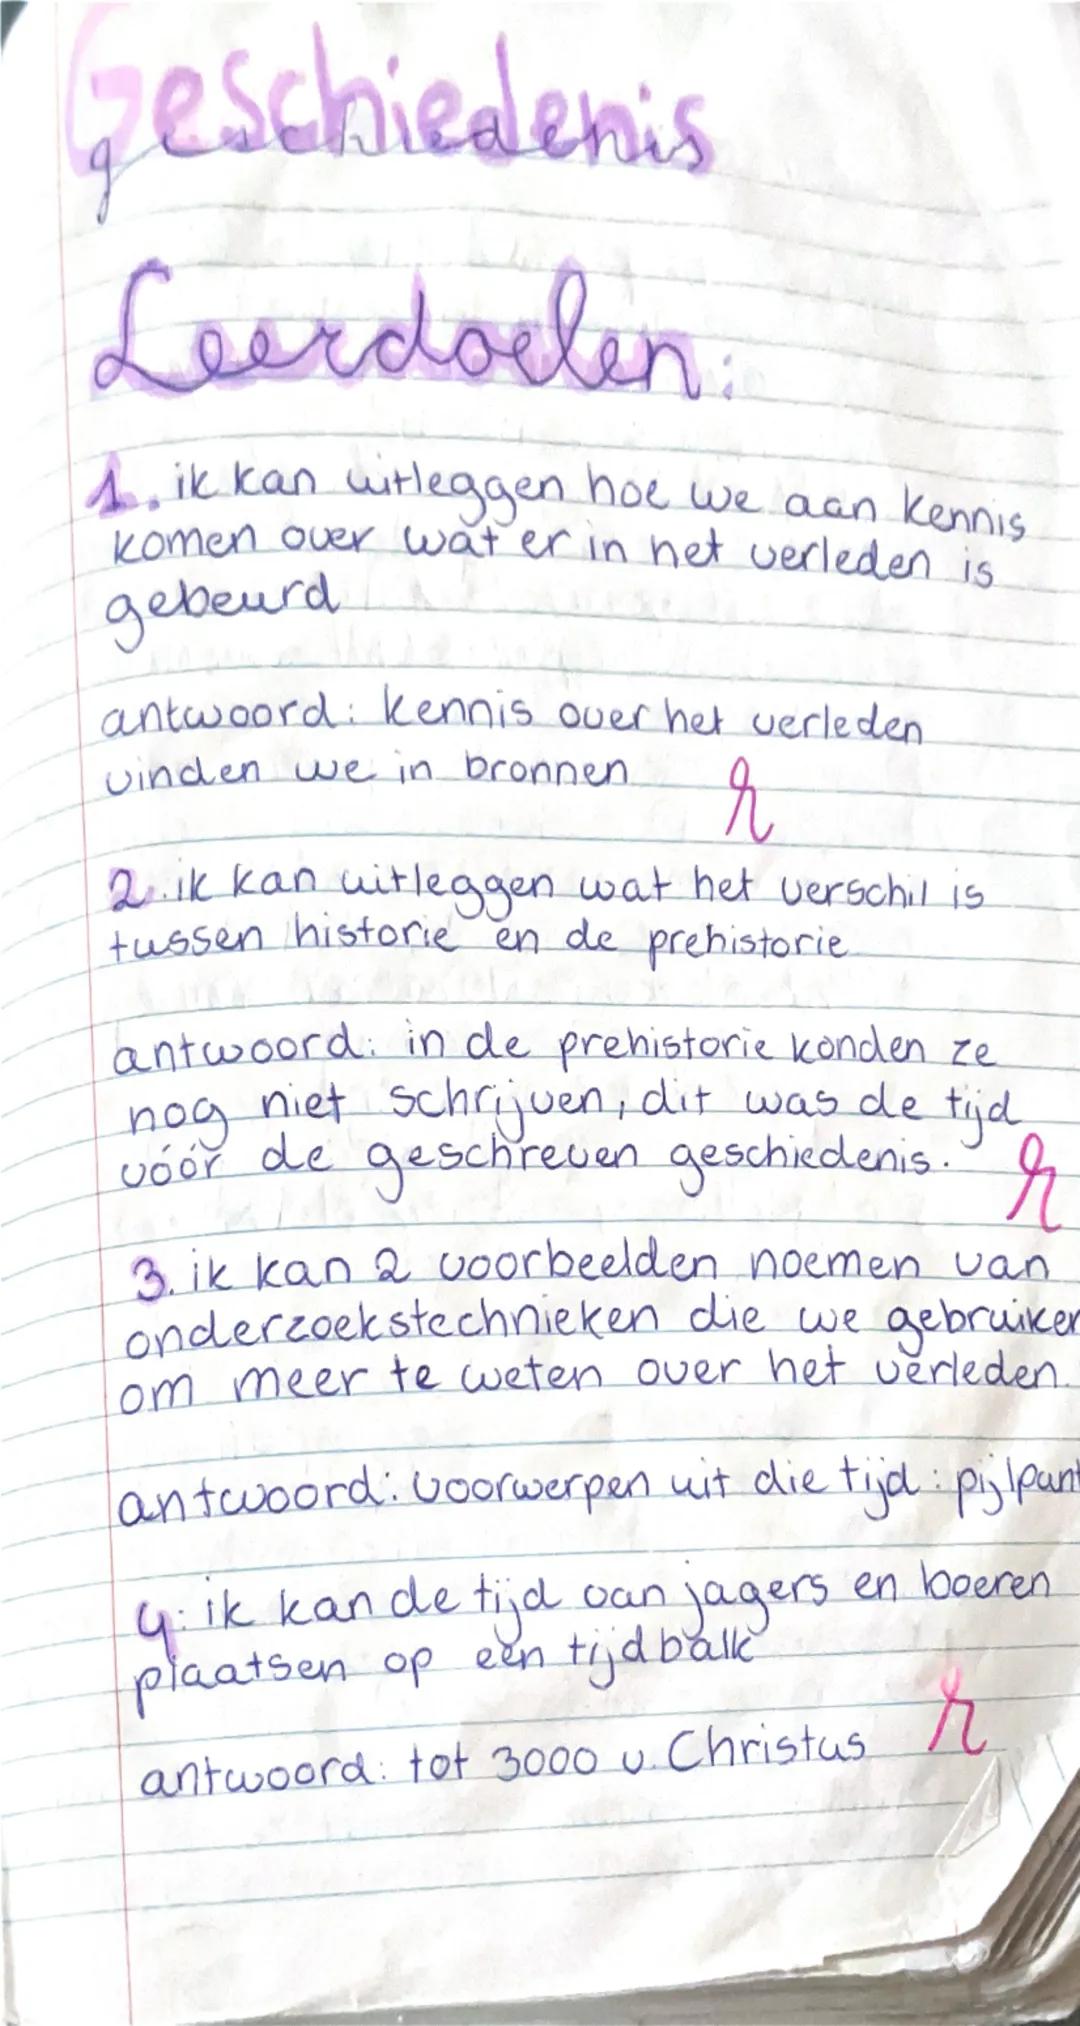 Geschiedenis
Leerdoelen:
1. ik kan uitleggen hoe we aan kennis
komen over wat er in het verleden is
gebeurd
antwoord: kennis over het verleden
vinden we in bronnen
2. ik kan uitleggen wat het verschil is
tussen historie en de prehistorie
antwoord: in de prehistorie konden ze
nog niet schrijven, dit was de tijd
vóór de geschreven geschiedenis.
3. ik kan 2 voorbeelden noemen van
onderzoekstechnieken die we gebruiken
om meer te weten over het verleden.
antwoord: voorwerpen uit die tijd: pijlpunt
4. ik kan de tijd van jagers en boeren
plaatsen op een tijdbalk
antwoord: tot 3000 v. Christus